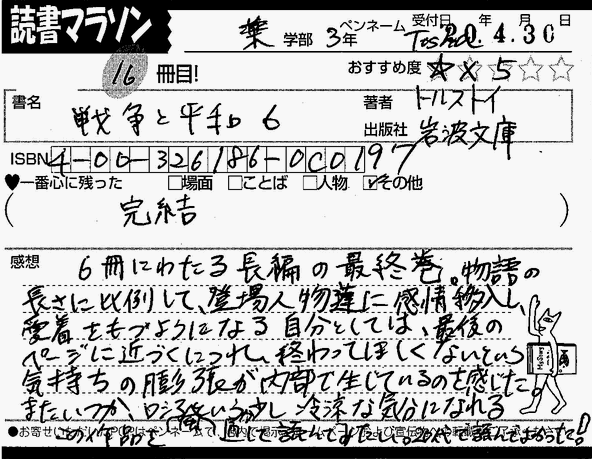 読書マラソン
薬学部 3年 ペンネーム 受付日 年 月 日
20.4.30
16 冊目! おすすめ度 ☆×5☆☆
書名 戦争と平和 6 著者 トルストイ
出版社 岩波文庫
ISBN 4-00-326186-0C0197
♥一番心に残った □場面 □ことば □人物 ☑その他
( 完結 )
感想 6冊にわたる長編の最終巻。物語の
長さに比例して、登場人物達に感情移入し、
愛着をもつようになる自分としては、最後の
ページに近づくにつれ、終わってほしくないという
気持ちの膨張が内部で生じているのを感じた。
またいつか、ロシアという少し冷涼な気分になれる
この作品を 直して読んでみたい。20代で読んでよかった!